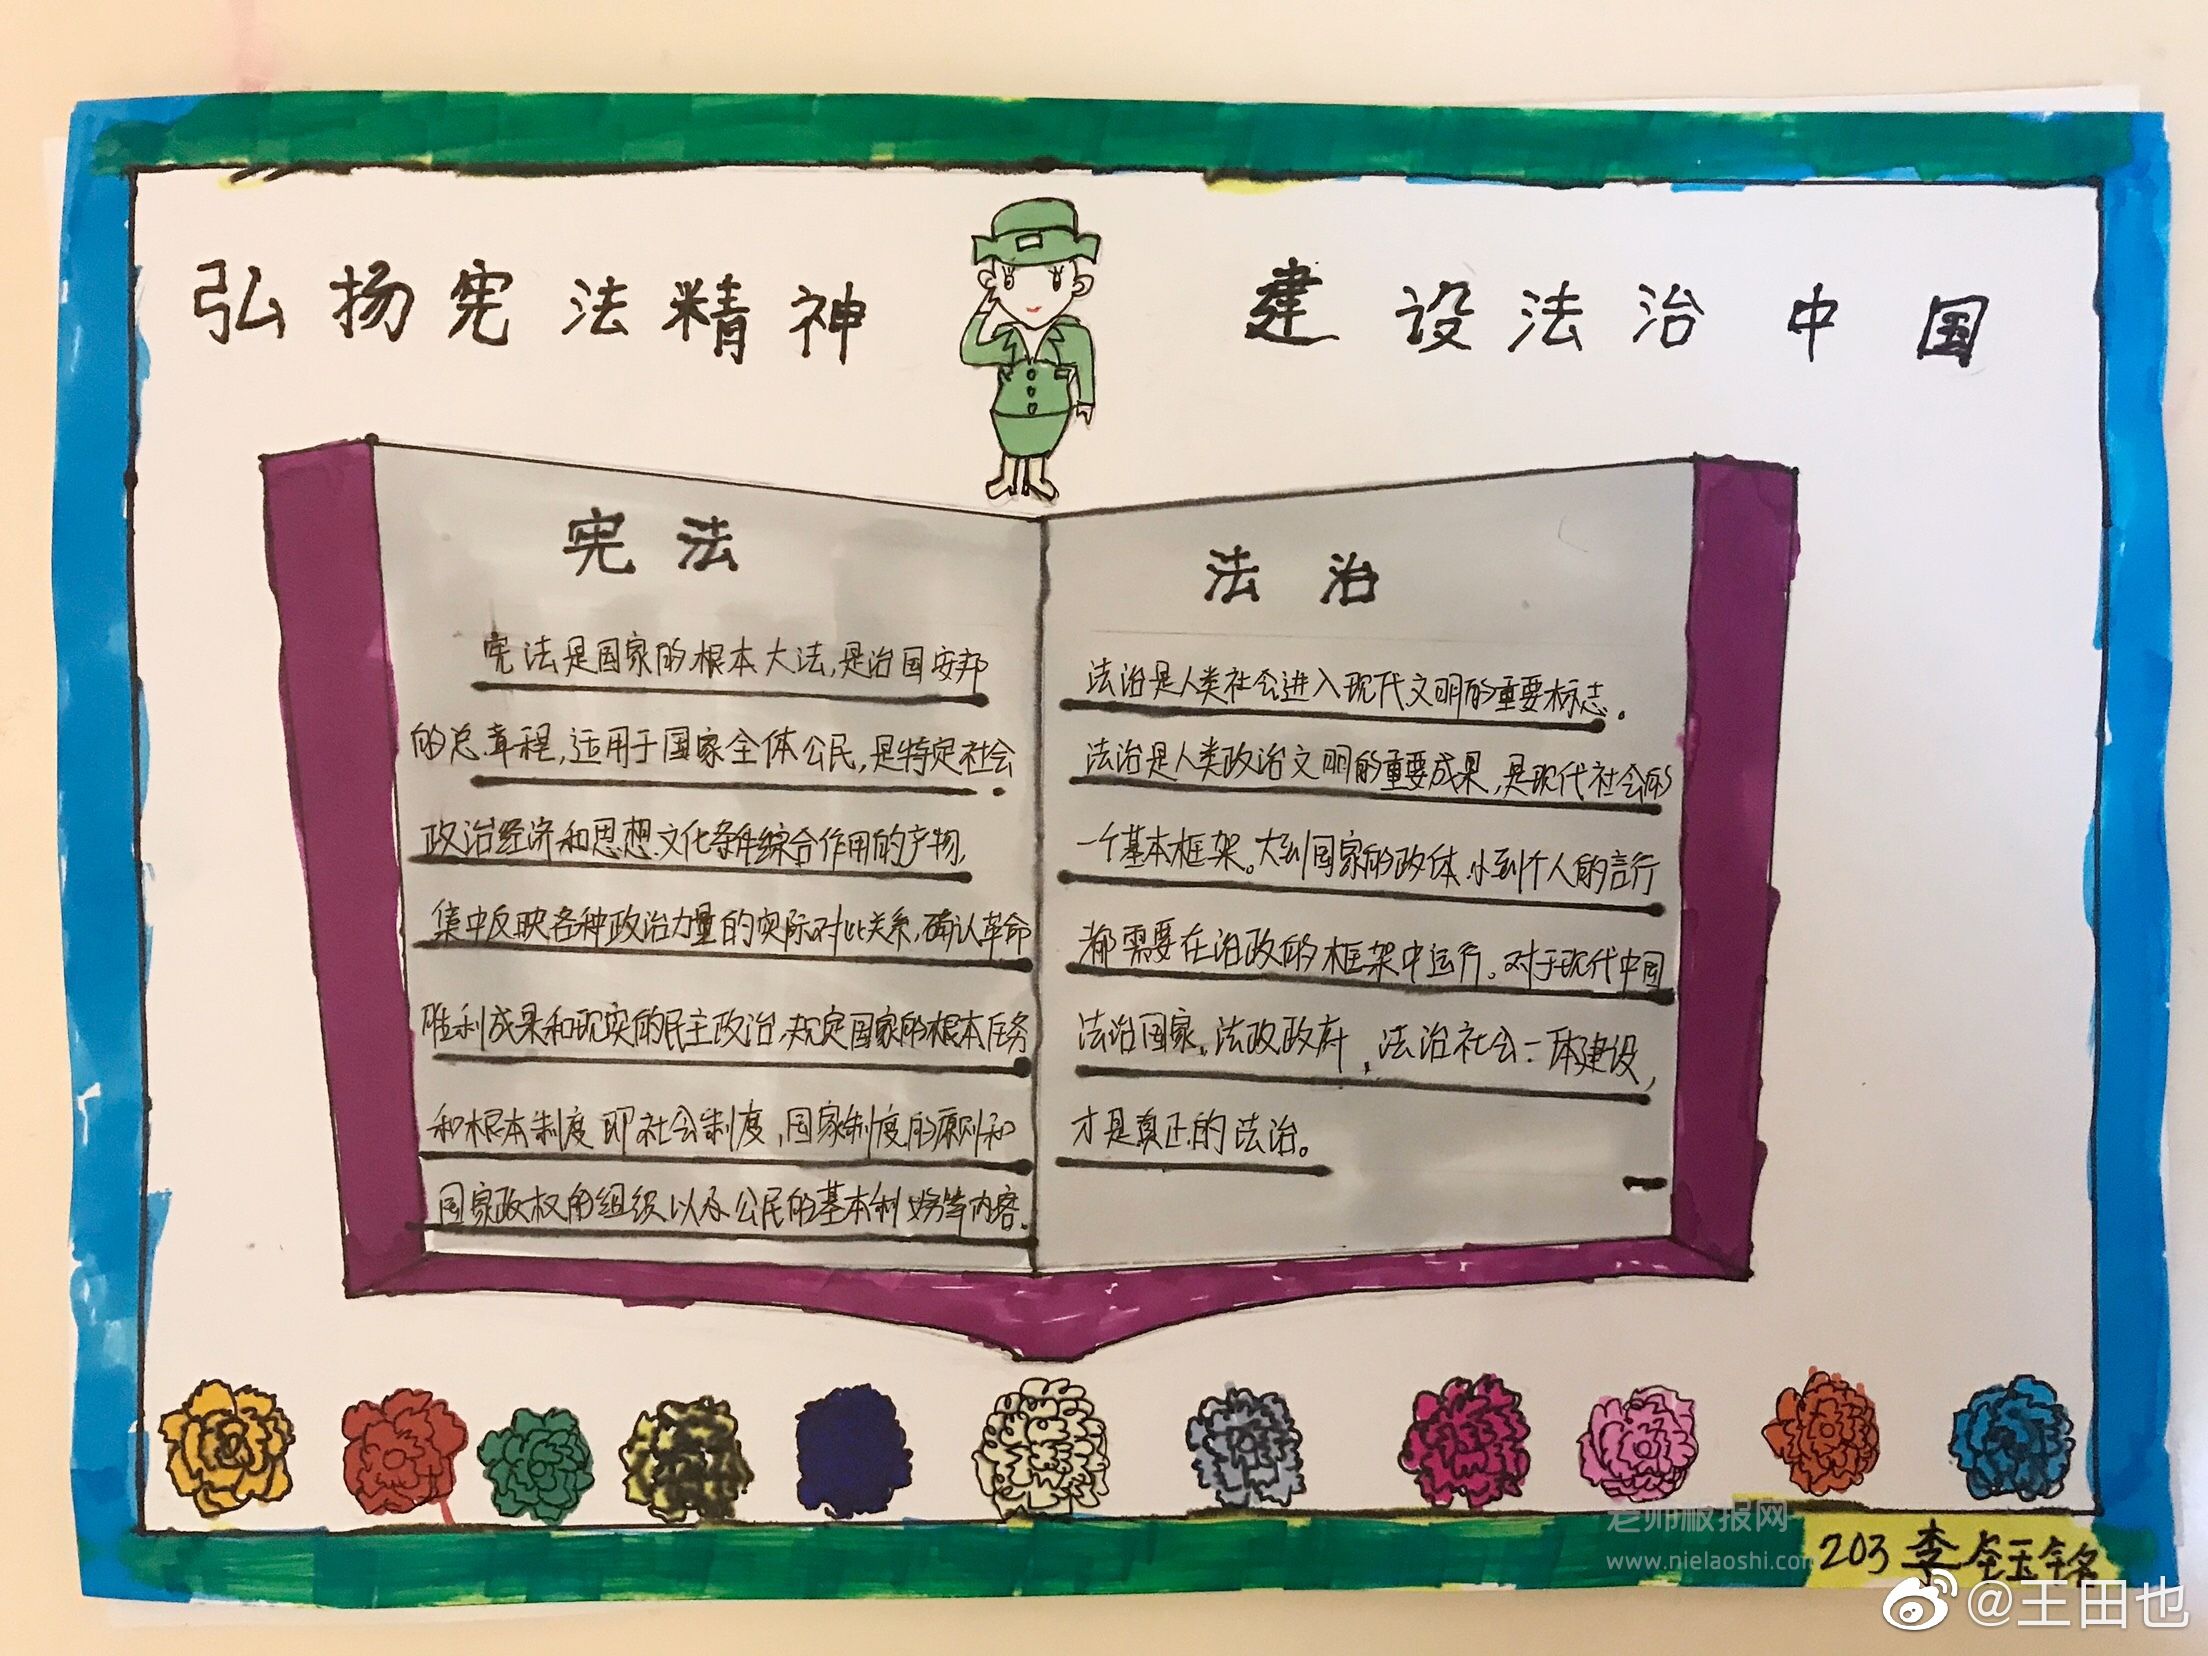 弘扬宪法精神
建设法治中国
宪法
宪法是国家的根本大法,是治国安邦
的总章程,适用于国家全体公民,是特定社会
政治经济和思想文化条件综合作用的产物,
集中反映各种政治力量的实际对比关系,确认革命
胜利成果和现实的民主政治,规定国家的根本任务
和根本制度即社会制度,国家制度的原则和
国家政权的组织以及公民的基本利 等内容.
法治
法治是人类社会进入现代文明的重要标志.
法治是人类政治文明的重要成果,是现代社会的
一个基本框架。大到国家的政体.小到个人的言行
都需要在治政的框架中运行。对于现代中国
法治国家,法政政府,法治社会一体建设,
才是真正的法治。
老师板报网
www.nielaoshi.com
203李钰铭
@王田也